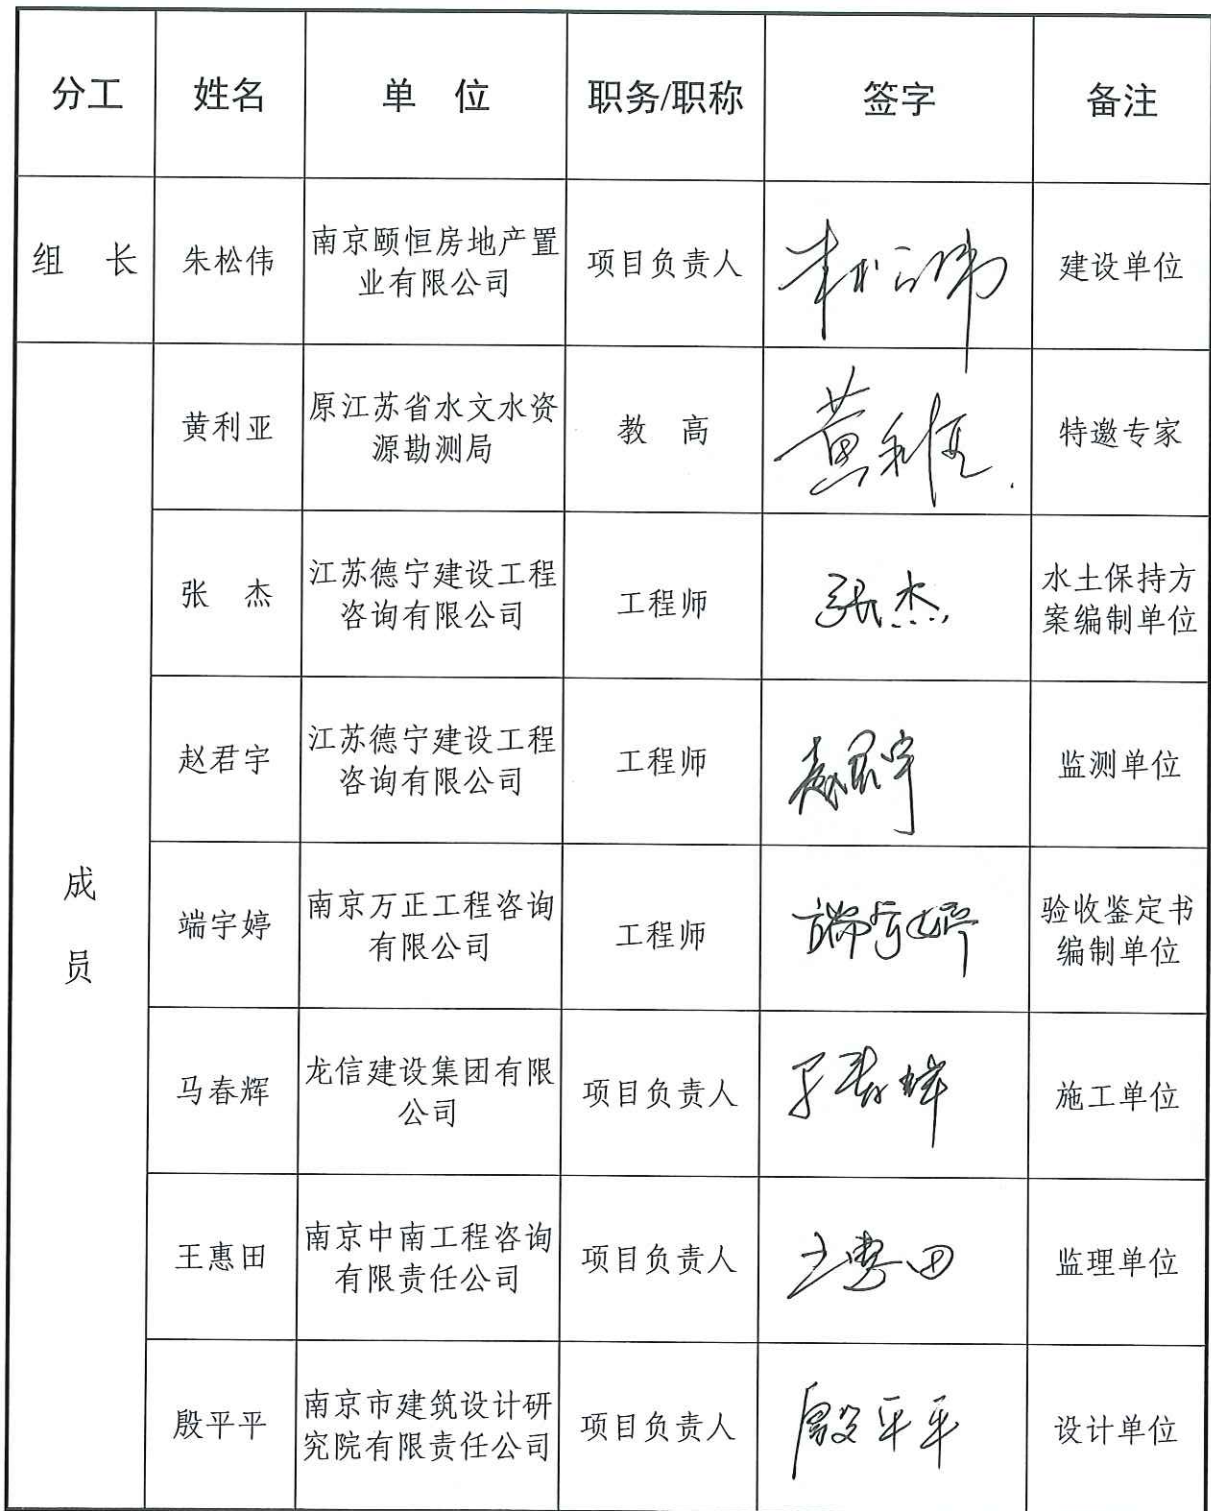 分工 姓名 单 位 职务/职称 签字 备注
组 长 朱松伟 南京颐恒房地产置
业有限公司 项目负责人 朱松伟 建设单位
成
员
黄利亚 原江苏省水文水资
源勘测局 教 高 黄利亚 特邀专家
张 杰 江苏德宁建设工程
咨询有限公司 工程师 张杰 水土保持方
案编制单位
赵君宇 江苏德宁建设工程
咨询有限公司 工程师 赵君宇 监测单位
端宇婷 南京万正工程咨询
有限公司 工程师 端宇婷 验收鉴定书
编制单位
马春辉 龙信建设集团有限
公司 项目负责人 马春辉 施工单位
王惠田 南京中南工程咨询
有限责任公司 项目负责人 王惠田 监理单位
殷平平 南京市建筑设计研
究院有限责任公司 项目负责人 殷平平 设计单位